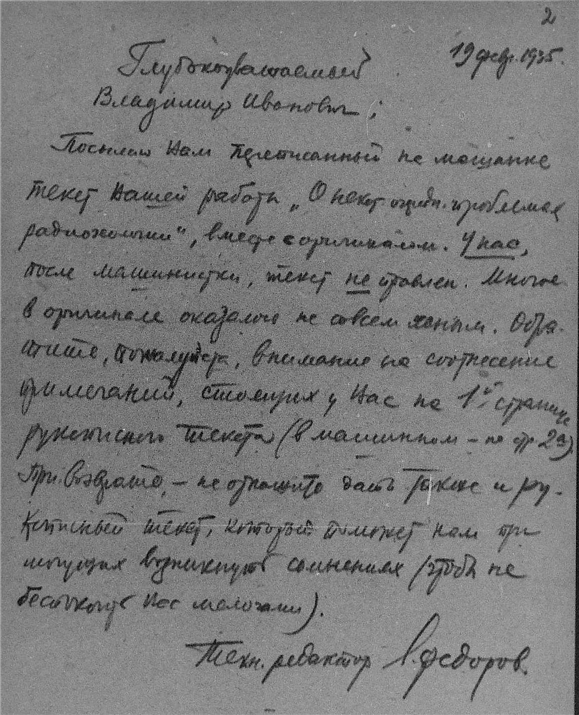 2
19 февр. 1935.
Глубокоуважаемый
Владимир Иванович,
Посылаю Вам переписанный на машинке
текст Вашей работы „О некот. очередн. проблемах
радиогеологии“, вместе с оригиналом. У нас,
после машинистки, текст не правлен. Многое
в оригинале оказалось не совсем ясным. Обра-
тите, пожалуйста, внимание на соотнесение
примечаний, стоящих у Вас на 1й странице
рукописного текста (в машинном – на стр. 2й)
При возврате, – не откажите дать также и ру-
кописный текст, который поможет нам при
могущих возникнуть сомнениях (чтобы не
беспокоить Вас мелочами).
Техн. редактор Федоров.